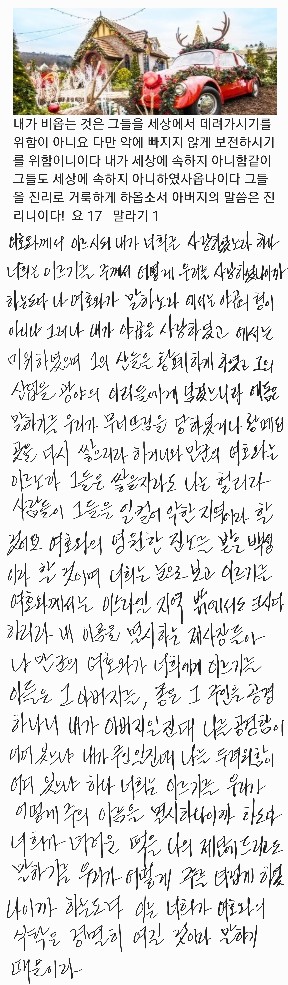 내가 비옵는 것은 그들을 세상에서 데려가시기를
위함이 아니요 다만 악에 빠지지 않게 보전하시기
를 위함이니이다 내가 세상에 속하지 아니함같이
그들도 세상에 속하지 아니하였사옵나이다 그들
을 진리로 거룩하게 하옵소서 아버지의 말씀은 진
리니이다! 요 17 말라기 1
여호와께서 이르시되 내가 너희를 사랑하였노라 하나
너희는 이르기를 주께서 어떻게 우리를 사랑하셨나이까
하는도다 나 여호와가 말하노라 에서는 야곱의 형이
아니냐 그러나 내가 야곱을 사랑하였고 에서는
미워하였으며 그의 산들을 황폐하게 하였고 그의
산업을 광야의 이리들에게 넘겼느니라 에돔은
말하기를 우리가 무너뜨림을 당하였으나 황폐된
곳을 다시 쌓으리라 하거니와 만군의 여호와는
이르노라 그들은 쌓을지라도 나는 헐리라
사람들이 그들을 일컬어 악한 지역이라 할
것이요 여호와의 영원한 진노를 받은 백성
이라 할 것이며 너희는 눈으로 보고 이르기를
여호와께서는 이스라엘 지역 밖에서도 크시다
하리라 내 이름을 멸시하는 제사장들아
나 만군의 여호와가 너희에게 이르기를
아들은 그 아버지를, 종은 그 주인을 공경
하나니 내가 아버지일진대 나를 공경함이
어디 있느냐 내가 주인일진대 나를 두려워함이
어디 있느냐 하나 너희는 이르기를 우리가
어떻게 주의 이름을 멸시하나이까 하는도다
너희가 더러운 떡을 나의 제단에 드리고도
말하기를 우리가 어떻게 주를 더럽게 하였
나이까 하는도다 이는 너희가 여호와의
식탁은 경멸히 여길 것이라 말하기
때문이라